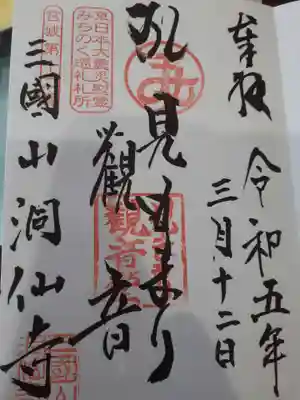 奉拝
令和五年
三月十二日
見まもり
觀音
東日本大震災慰霊
みちのく巡礼札所
宮城第十
三國山洞仙寺